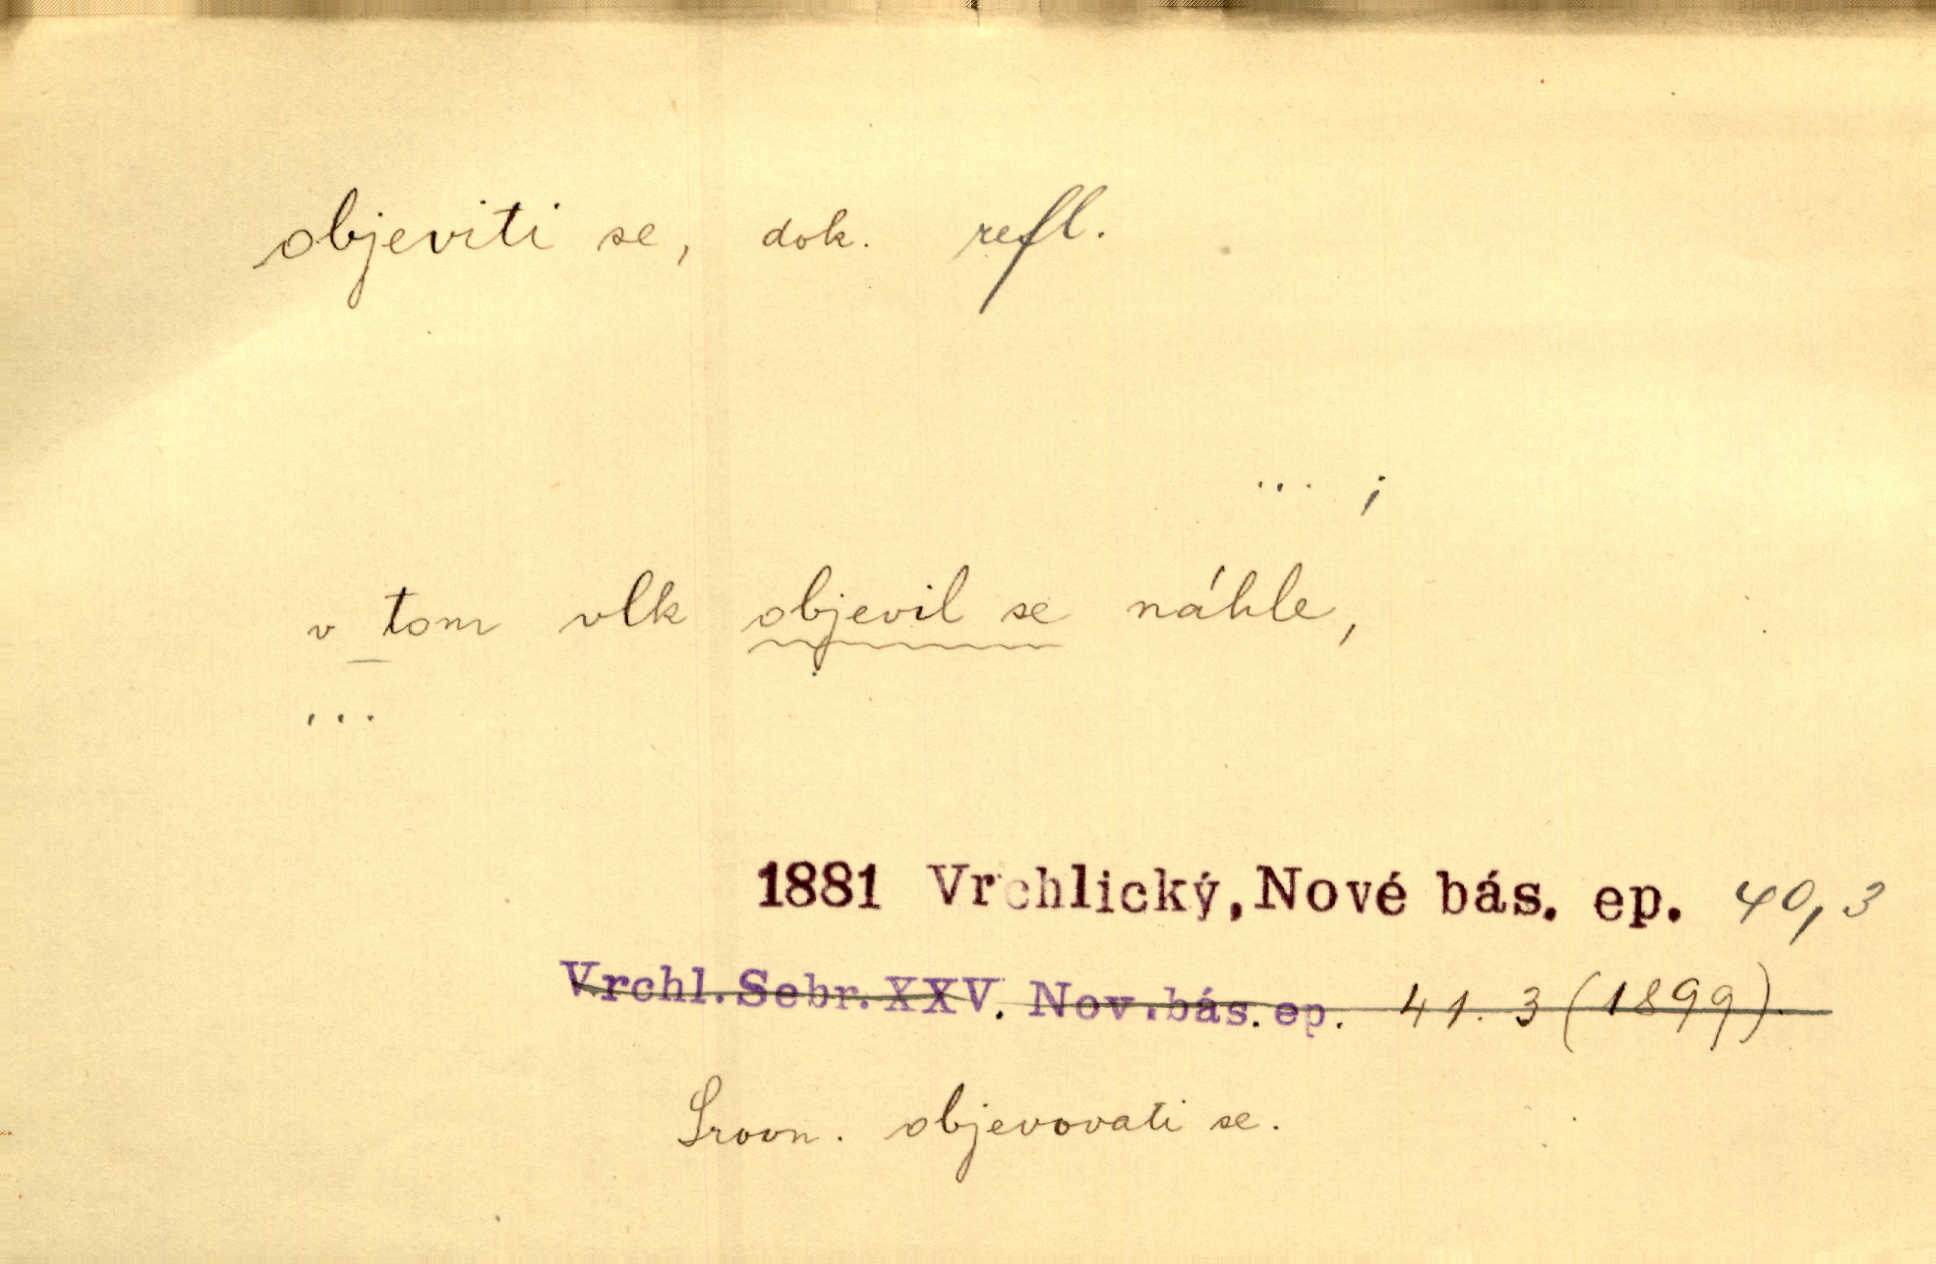 objeviti se, dok. refl.
... ;
v tom vlk objevil se náhle,
...
1881 Vrchlický, Nové bás. ep. 40,3
Vrchl. Sebr. XXV. Nov. bás. ep. 41. 3 (1899).
Srovn. objevovati se.